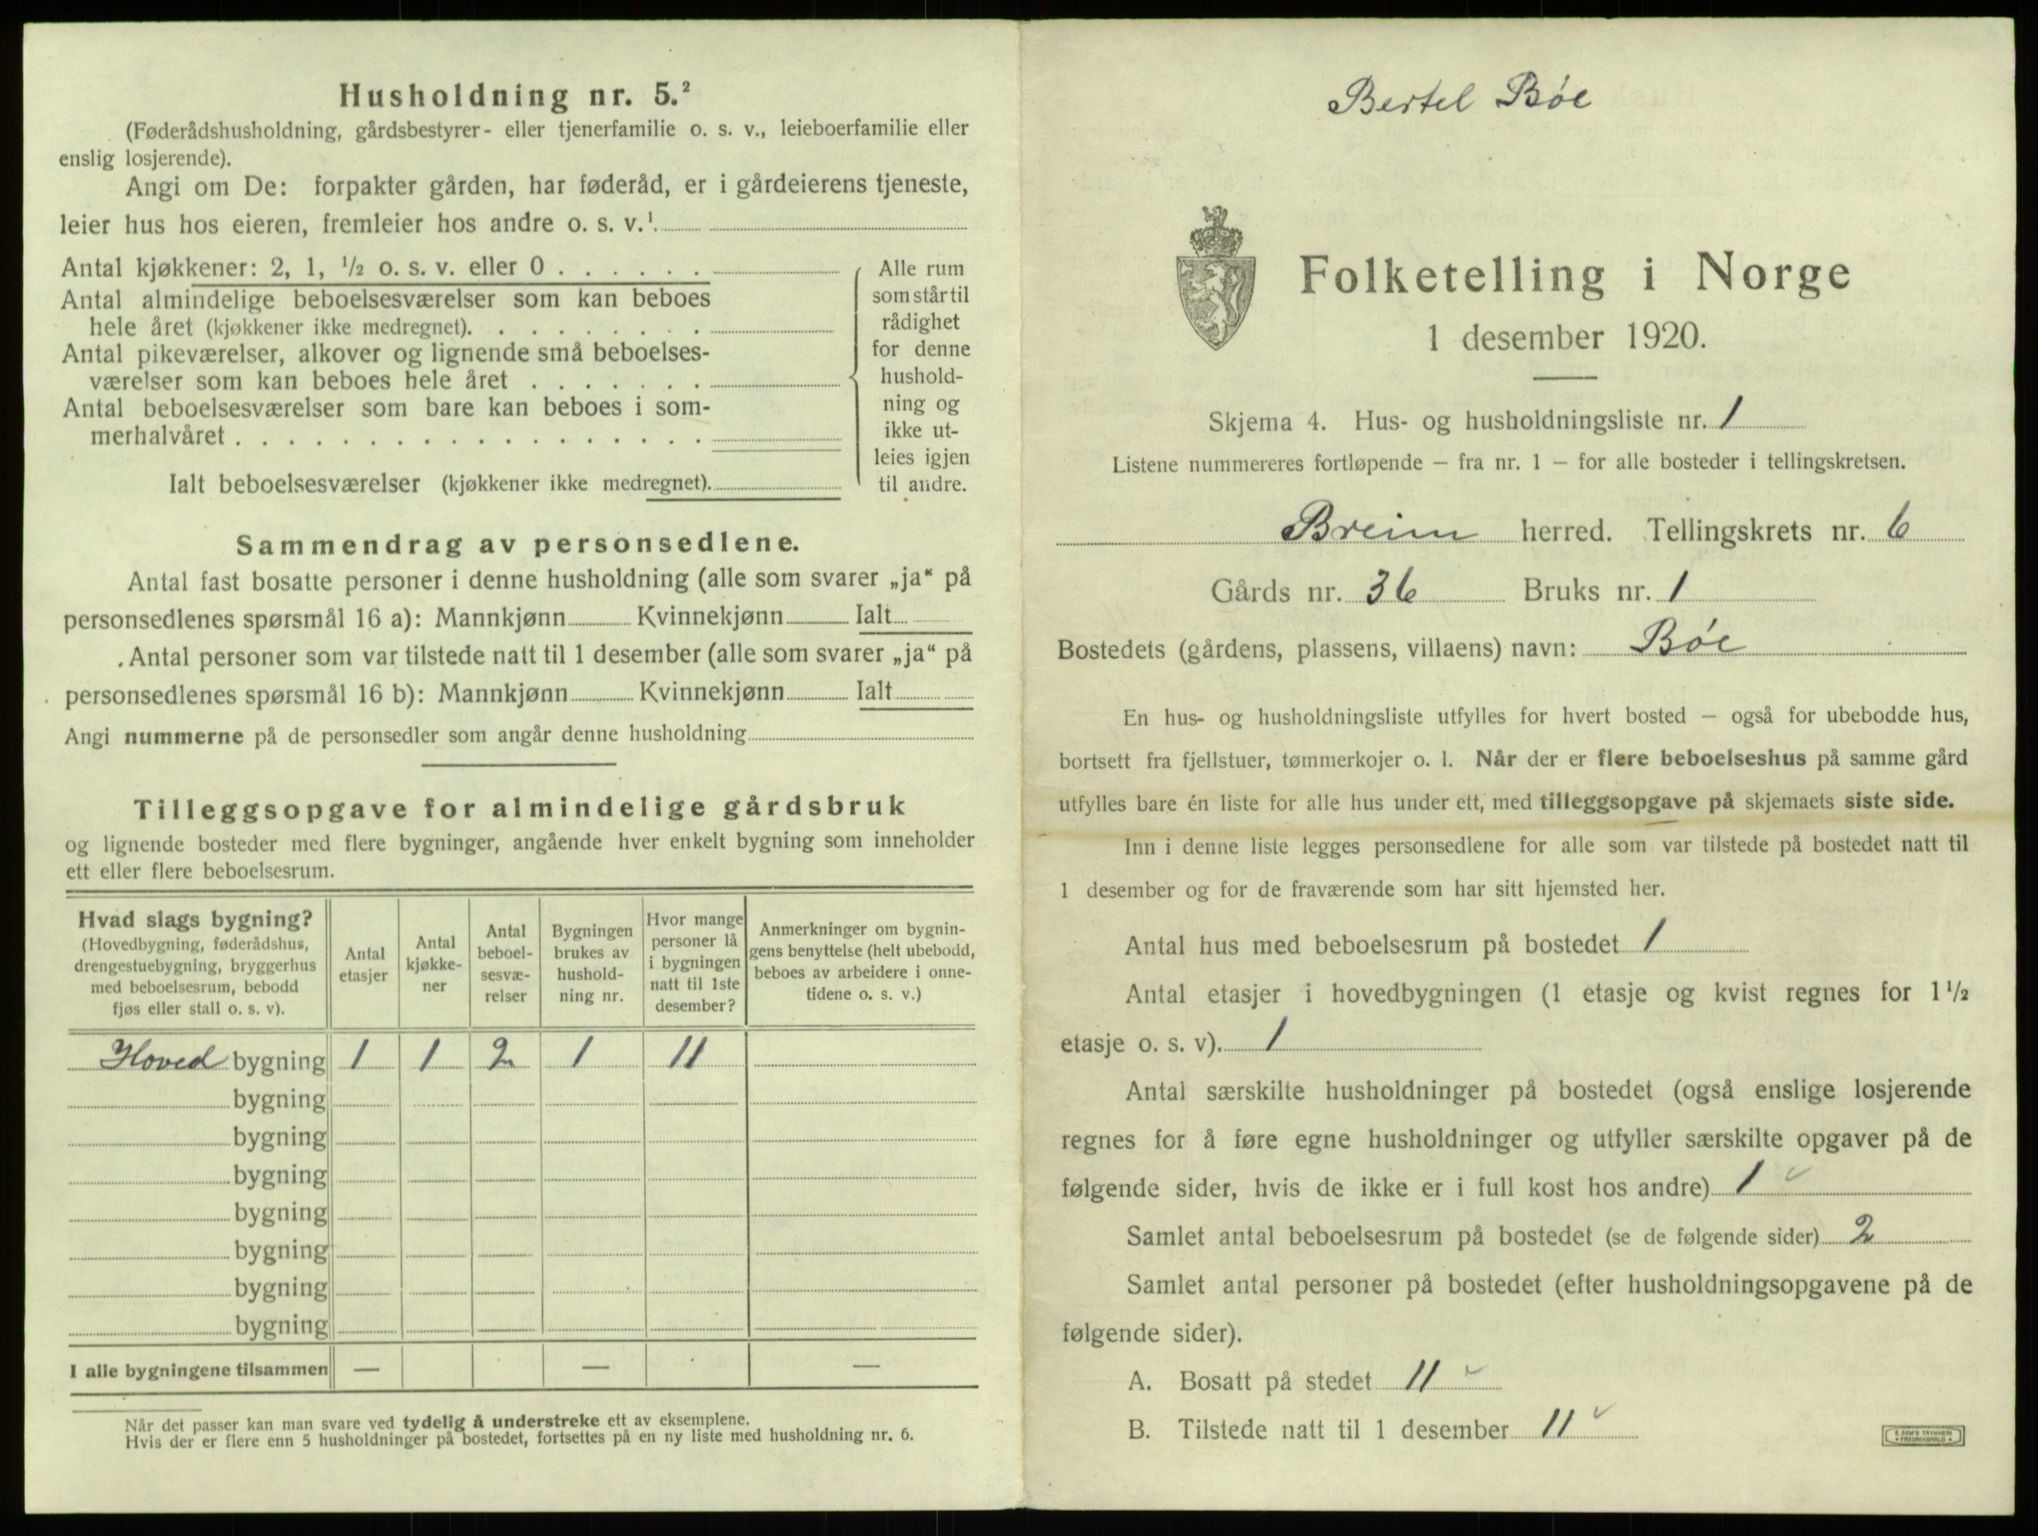 Husholdning nr. 5.²
(Føderådshusholdning, gårdsbestyrer- eller tjenerfamilie o. s. v., leieboerfamilie eller
enslig losjerende).
Angi om De: forpakter gården, har føderåd, er i gårdeierens tjeneste,
leier hus hos eieren, fremleier hos andre o. s. v.¹
Antal kjøkkener: 2, 1, ½ o. s. v. eller 0 . . . . . .
Antal almindelige beboelsesværelser som kan beboes
hele året (kjøkkener ikke medregnet). . . . . . . . .
Antal pikeværelser, alkover og lignende små beboelses-
værelser som kan beboes hele året . . . . . . .
Antal beboelsesværelser som bare kan beboes i som-
merhalvåret . . . . . . . . . . . . . . . . . .
Ialt beboelsesværelser (kjøkkener ikke medregnet).
Alle rum
som står til
rådighet
for denne
hushold-
ning og
ikke ut-
leies igjen
til andre.
Sammendrag av personsedlene.
Antal fast bosatte personer i denne husholdning (alle som svarer „ja“ på
personsedlenes spørsmål 16 a): Mannkjønn Kvinnekjønn Ialt
Antal personer som var tilstede natt til 1 desember (alle som svarer „ja“ på
personsedlenes spørsmål 16 b): Mannkjønn Kvinnekjønn Ialt
Angi nummerne på de personsedler som angår denne husholdning
Tilleggsopgave for almindelige gårdsbruk
og lignende bosteder med flere bygninger, angående hver enkelt bygning som inneholder
ett eller flere beboelsesrum.
Hvad slags bygning?
(Hovedbygning, føderådshus,
drengestuebygning, bryggerhus
med beboelsesrum, bebodd
fjøs eller stall o. s. v).
Antal
etasjer
Antal
kjøkke-
ner
Antal
beboel-
sesvæ-
relser
Bygningen
brukes av
hushold-
ning nr.
Hvor mange
personer lå
i bygningen
natt til 1ste
desember?
Anmerkninger om bygnin-
gens benyttelse (helt ubebodd,
beboes av arbeidere i onne-
tidene o. s. v.)
Hoved bygning 1 1 2 1 11
bygning
bygning
bygning
bygning
bygning
bygning
bygning
I alle bygningene tilsammen — — —
Når det passer kan man svare ved tydelig å understreke ett av eksemplene.
Hvis der er flere enn 5 husholdninger på bostedet, fortsettes på en ny liste med husholdning nr. 6.
Bertel Bøe
Folketelling i Norge
1 desember 1920.
Skjema 4. Hus- og husholdningsliste nr. 1
Listene nummereres fortløpende – fra nr. 1 – for alle bosteder i tellingskretsen.
Breim herred. Tellingskrets nr. 6
Gårds nr. 36 Bruks nr. 1
Bostedets (gårdens, plassens, villaens) navn: Bøe
En hus- og husholdningsliste utfylles for hvert bosted – også for ubebodde hus,
bortsett fra fjellstuer, tømmerkojer o. l. Når der er flere beboelseshus på samme gård
utfylles bare én liste for alle hus under ett, med tilleggsopgave på skjemaets siste side.
Inn i denne liste legges personsedlene for alle som var tilstede på bostedet natt til
1 desember og for de fraværende som har sitt hjemsted her.
Antal hus med beboelsesrum på bostedet 1
Antal etasjer i hovedbygningen (1 etasje og kvist regnes for 1½
etasje o. s. v). 1
Antal særskilte husholdninger på bostedet (også enslige losjerende
regnes for å føre egne husholdninger og utfyller særskilte opgaver på de
følgende sider, hvis de ikke er i full kost hos andre) 1
Samlet antal beboelsesrum på bostedet (se de følgende sider) 2
Samlet antal personer på bostedet (efter husholdningsopgavene på de
følgende sider).
A. Bosatt på stedet 11
B. Tilstede natt til 1 desember 11
E. SEM'S TRYKKERI
FREDRIKSHALD